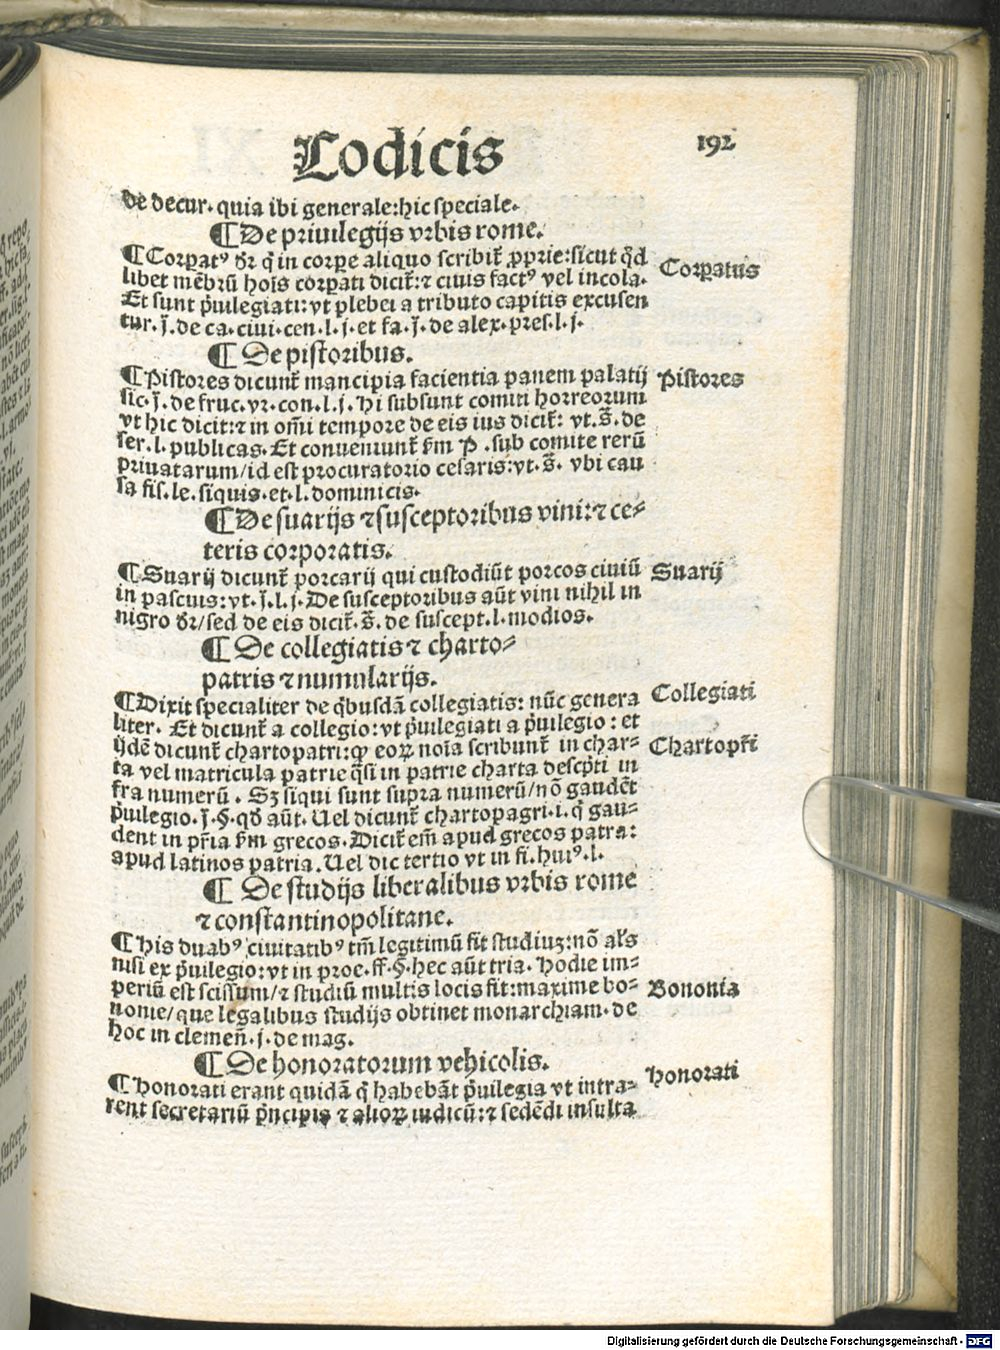 Codicis
192
de decur. quia ibi generale: hic speciale.
¶ De priuilegijs vrbis rome.
¶ Corpatꝰ dr̃ q̃ in corpe aliquo scribit̃ ꝓprie: sicut qd̃
libet mẽbrũ hoĩs corpati dicit̃: ⁊ ciuis factꝰ vel incola.
Et sunt p̃uilegiati: vt plebei a tributo capitis excusen
tur. j̃. de ca. ciui. cen. l. j. et fa. j̃. de alex. pres. l. j.
Corpatus
¶ De pistoribus.
¶ Pistores dicunt̃ mancipia facientia panem palatij
sic. j̃. de fruc. vr. con. l. j. Hi subsunt comiti horreorum
vt hic dicit: ⁊ in om̃i tempore de eis ius dicit̃: vt. s̃. de
ser. l. publicas. Et conueniunt̃ f̃m P . sub comite rerũ
priuatarum/ id est procuratorio cesaris: vt. s̃. vbi cau
sa fis. le. siquis. et. l. dominicis.
Pistores
¶ De suarijs ⁊ susceptoribus vini: ⁊ ce⸗
teris corporatis.
¶ Suarij dicunt̃ porcarij qui custodiũt porcos ciuiũ
in pascuis: vt. j̃. l. j. De susceptoribus aũt vini nihil in
nigro dr̃/ sed de eis dicit̃. s̃. de suscept. l. modios.
Suarij
¶ De collegiatis ⁊ charto⸗
patris ⁊ numularijs.
¶ Dixit specialiter de q̃busdã collegiatis: nũc genera
liter. Et dicunt̃ a collegio: vt p̃uilegiati a p̃uilegio: et
ijdẽ dicunt̃ chartopatri: qꝫ eoꝝ noĩa scribunt̃ in char⸗
ta vel matricula patrie q̃si in patrie charta descp̃ti in
fra numerũ. Sꝫ siqui sunt supra numerũ/ nõ gaudẽt
p̃uilegio. j̃. §. qd̃ aũt. Uel dicunt̃ chartopagri. i. q̃ gau⸗
dent in pr̃ia f̃m grecos. Dicit̃ em̃ apud grecos patra:
apud latinos patria. Uel dic tertio vt in fi. huiꝰ. l.
Collegiati
Chartopr̃i
¶ De studijs liberalibus vrbis rome
⁊ constantinopolitane.
¶ His duabꝰ ciuitatibꝰ tm̃ legitimũ fit studiuꝫ: nõ al̃s
nisi ex p̃uilegio: vt in proe. ff. §. hec aũt tria. Hodie im⸗
periũ est scissum/ ⁊ studiũ multis locis fit: maxime bo⸗
nonie/ que legalibus studijs obtinet monarchiam. de
hoc in clemeñ. j. de mag.
Bononia
¶ De honoratorum vehicolis.
¶ Honorati erant quidã q̃ habebãt p̃uilegia vt intra⸗
rent secretariũ p̃ncipis ⁊ alioꝝ iudicũ: ⁊ sedẽdi insulta
Honorati
Digitalisierung gefördert durch die Deutsche Forschungsgemeinschaft - DFG